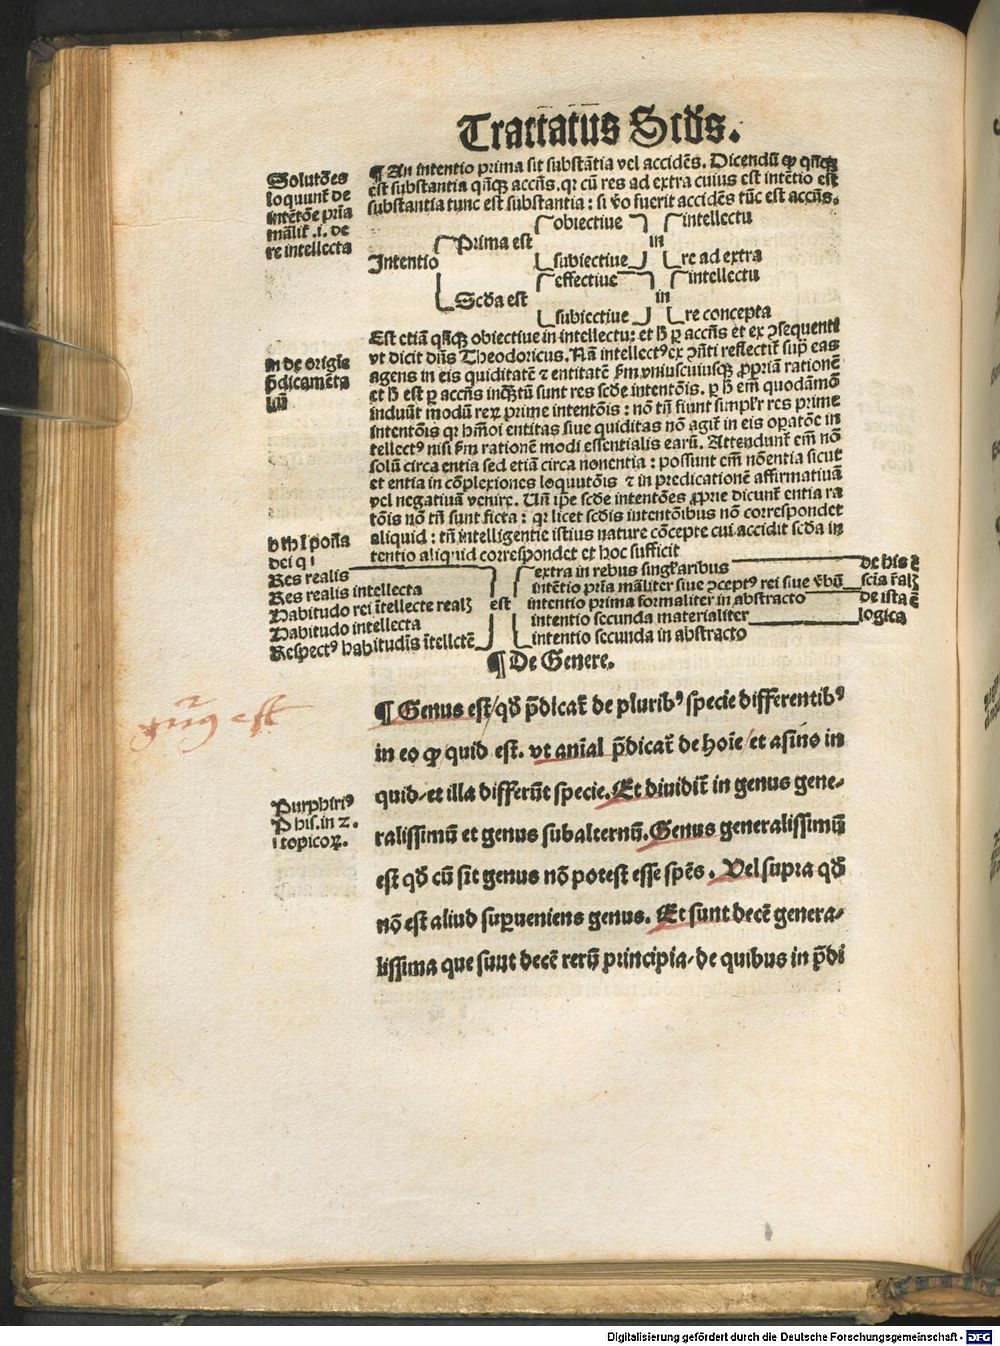 Tractatus Scd̄s.
¶ An intentio prima sit substātia vel accidēs. Dicendū ꝙ qn̄qꝫ
est substantia qn̄qꝫ accn̄s. qꝛ cū res ad extra cuius est intētio est
substantia tunc est substantia: si v̄o fuerit accidēs tūc est accn̄s.
Solutōes
loquunt̄ de
intētōe pria
māliť .i. de
re intellecta
Intentio
Prima est
obiectiue
subiectiue
in
intellectu
re ad extra
Scd̄a est
effectiue
subiectiue
in
intellectu
re concepta
Est etiā qn̄qꝫ obiectiue in intellectu: et h̄ ꝑ accn̄s et ex ↄsequenti
vt dicit dn̄s Theodoricus. Nā intellectꝰ ex ↄn̄ti reflectit̄ suꝑ eas
agens in eis quiditatē ⁊ entitatē ẜm vniuscuiusqꝫ ꝓpriā rationē
et h̄ est ꝑ accn̄s inqꝫtū sunt res scd̄e intentōis. ꝑ h̄ em̄ quodāmō
induūt modū reꝝ prime intentōis: nō tn̄ fiunt simpl̄r res prime
intentōis qꝛ hm̄oi entitas siue quiditas nō agit̄ in eis oꝑatōe in
tellectꝰ nisi ẜm rationē modi essentialis earū. Attendunt̄ em̄ nō
solū circa entia sed etiā circa nonentia: possunt em̄ nōentia sicut
et entia in cōplexiones loquutōis ⁊ in predicationē affirmatiuā
vel negatiuā venire. Un̄ ip̄e scd̄e intentōes ꝓprie dicunt̄ entia ra
tōis nō tn̄ sunt ficta: qꝛ licet scd̄is intentōibus nō correspondet
aliquid: tn̄ intelligentie istius nature cōcepte cui accidit scd̄a in
tentio aliquid correspondet et hoc sufficit
in de origīe
p̄dicamēta
liū
Res realis
Res realis intellecta
Habitudo rei ītellecte realꝫ
Habitudo intellecta
Respectꝰ habitudīs ītellctē
est
extra in rebus singl̄aribus
intētio pria māliter siue ↄceptꝰ rei siue v̄bū
intentio prima formaliter in abstracto
intentio secunda materialiter
intentio secunda in abstracto
de his ē
scīa r̄alꝫ
de ista ē
logica
¶ De Genere.
¶ Genus est/ qd̄ p̄dicat̄ de pluribꝰ specie differentibꝰ
in eo ꝙ quid est. vt aīal p̄dicat̄ de hoīe/ et asino in
quid/ et illa differūt specie. Et diuidit̄ in genus gene-
ralissimū et genus subalternū. Genus generalissimū
est qd̄ cū sit genus nō potest esse spēs. Vel supra qd̄
nō est aliud suꝑueniens genus. Et sunt decē genera-
lissima que sunt decē rerū principia/ de quibus in p̄di
Purphiriꝰ
Phis. in 2.
topicoꝝ.